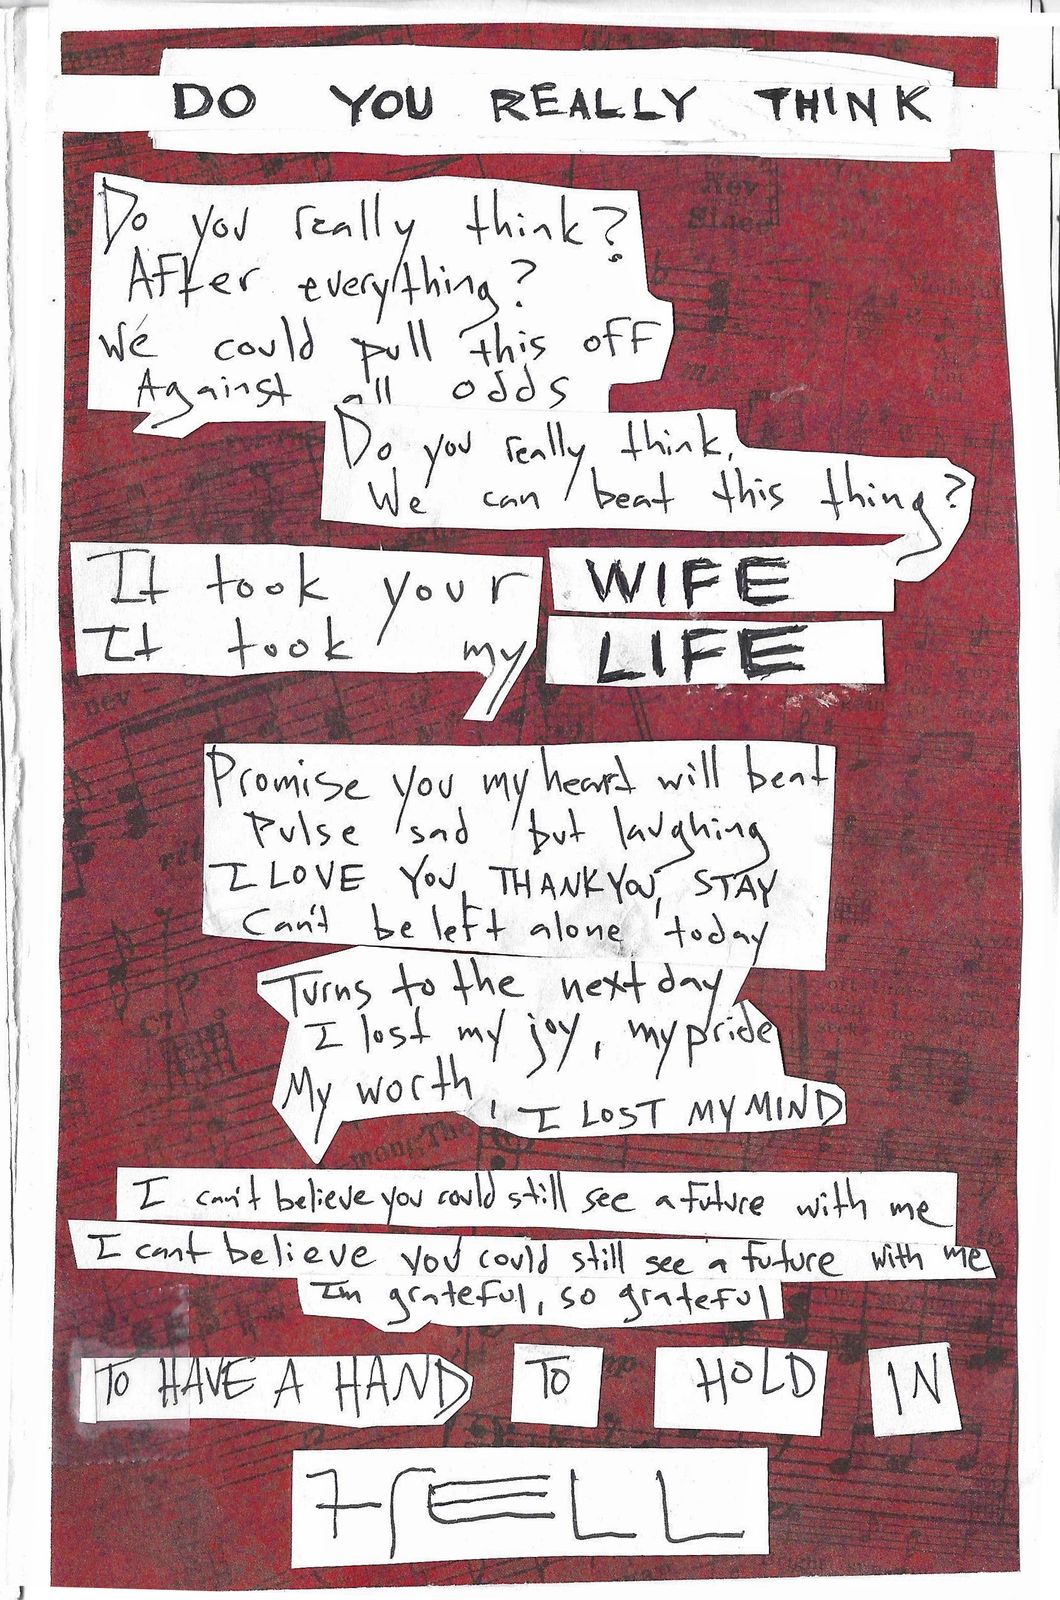 DO YOU REALLY THINK
Do you really think?
After everything?
We could pull this off
Against all odds
Do you really think,
We can beat this thing?
It took your WIFE
It took my LIFE
Promise you my heart will beat
Pulse sad but laughing
I LOVE YOU, THANK YOU, STAY
Can't be left alone today
Turns to the next day
I lost my joy, my pride
My worth, I LOST MY MIND
I can't believe you could still see a future with me
I cant believe you could still see a future with me
I'm grateful, so grateful
TO HAVE A HAND TO HOLD IN
HELL